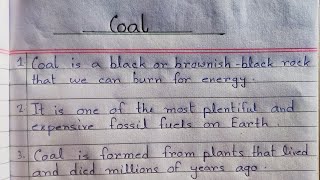 Coal
1. Coal is a black or brownish-black rock
that we can burn for energy.
2. It is one of the most plentiful and
expensive fossil fuels on Earth.
3. Coal is formed from plants that lived
and died millions of years ago.